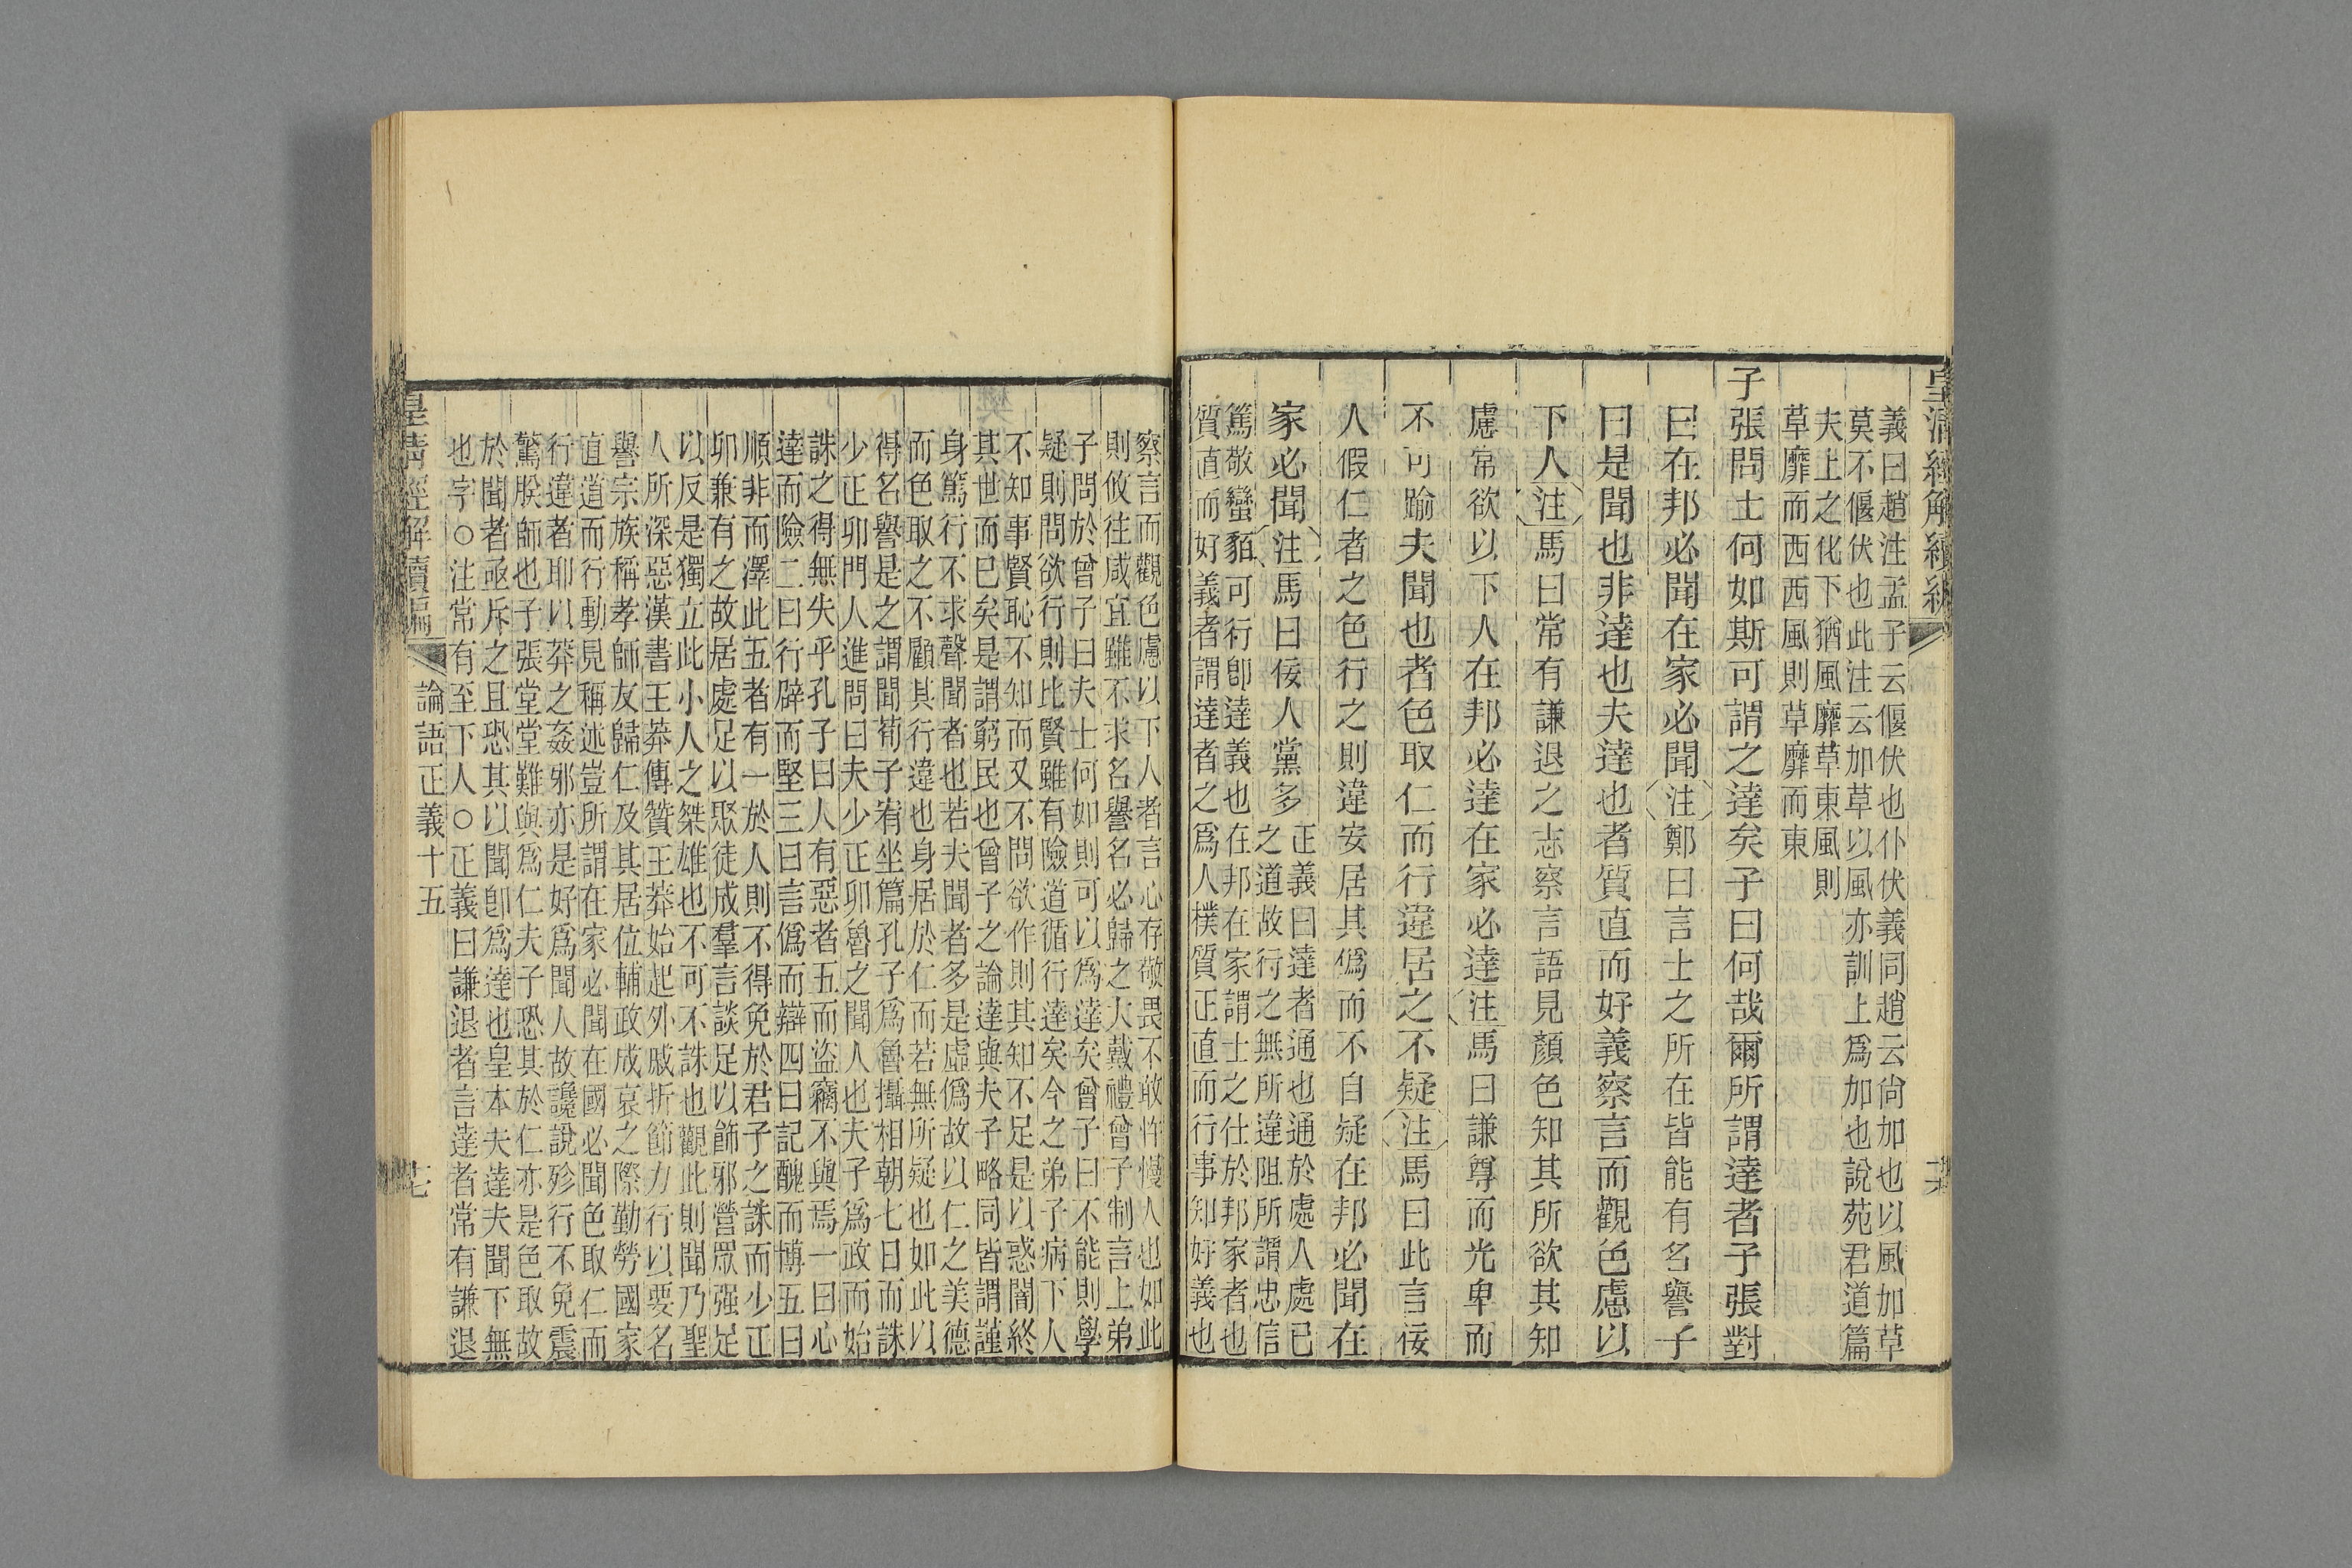 皇清經解續編
義曰趙注孟子云偃伏也仆伏義同趙云尙加也以風加草
莫不偃伏也此注云加草以風亦訓上爲加也說苑君道篇
夫上之化下猶風靡草東風則
草靡而西西風則草靡而東
子張問士何如斯可謂之達矣子曰何哉爾所謂達者子張對
曰在邦必聞在家必聞注鄭曰言士之所在皆能有名譽子
曰是聞也非達也夫達也者質直而好義察言而觀色慮以
下人注馬曰常有謙退之志察言語見顏色知其所欲其知
慮常欲以下人在邦必達在家必達注馬曰謙尊而光卑而
不可踰夫聞也者色取仁而行違居之不疑注馬曰此言佞
人假仁者之色行之則違安居其僞而不自疑在邦必聞在
家必聞注馬曰佞人黨多
正義曰達者通也通於處人處已
之道故行之無所違阻所謂忠信
篤敬蠻貊可行卽達義也在邦在家謂士之仕於邦家者也
質直而好義者謂達者之爲人樸質正直而行事知好義也
察言而觀色慮以下人者言心存敬畏不敢忤慢人也如此
則攸往咸宜雖不求名譽名必歸之大戴禮曾子制言上弟
子問於曾子曰夫士何如則可以爲達矣曾子曰不能則學
疑則問欲行則比賢雖有險道循行達矣今之弟子病下人
不知事賢恥不知而又不問欲作則其知不足是以惑闇終
其世而已矣是謂窮民也曾子之論達與夫子略同皆謂謹
身篤行不求聲聞者也若夫聞者多是虛僞故以仁之美德
而色取之不顧其行違也身居於仁而若無所疑也如此以
得名譽是之謂聞荀子宥坐篇孔子爲魯攝相朝七日而誅
少正卯門人進問曰夫少正卯魯之聞人也夫子爲政而始
誅之得無失乎孔子曰人有惡者五而盜竊不與焉一曰心
達而險二曰行辟而堅三曰言僞而辯四曰記醜而博五曰
順非而澤此五者有一於人則不得免於君子之誅而少正
卯兼有之故居處足以聚徒成羣言談足以飾邪營眾强足
以反是獨立此小人之桀雄也不可不誅也觀此則聞乃聖
人所深惡漢書王莽傳贊王莽始起外戚折節力行以要名
譽宗族稱孝師友歸仁及其居位輔政成哀之際勤勞國家
直道而行動見稱述豈所謂在家必聞在國必聞色取仁而
行違者耶以莽之姦邪亦是好爲聞人故讒說殄行不免震
驚朕師也子張堂堂難與爲仁夫子恐其於仁亦是色取故
於聞者亟斥之且恐其以聞卽爲達也皇本夫達夫聞下無
也字○注常有至下人○正義曰謙退者言達者常有謙退
皇清經解續編
論語正義十五